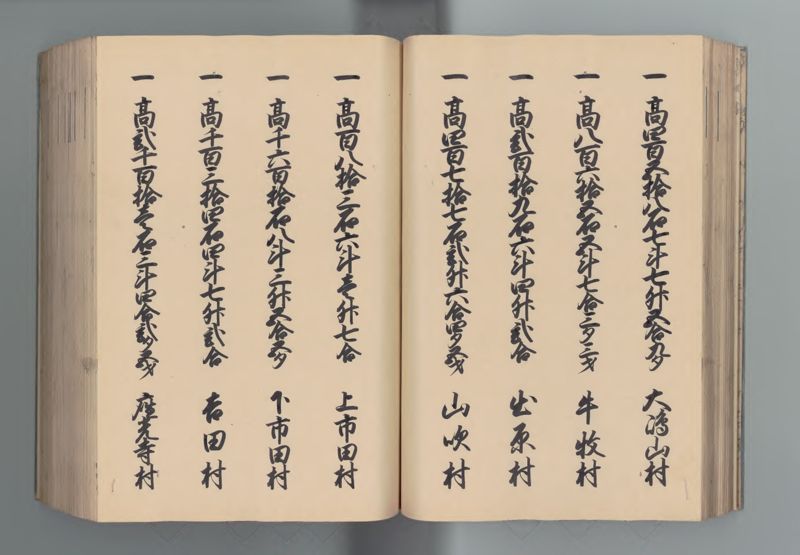 一 高四百五拾八石七斗七升五合九夕 大嶋山村
一 高八百六拾五石五斗七合三夕三才 牛牧村
一 高弐百拾九石六斗四升弐合 出原村
一 高四百七拾七石弐升六合四夕五才 山吹村
一 高百八拾三石六斗壱升七合 上市田村
一 高千六百拾石八斗三升五合五夕 下市田村
一 高千百三拾四石四斗七升弐合 吉田村
一 高弐千百拾壱石三斗四合弐夕五才 座光寺村